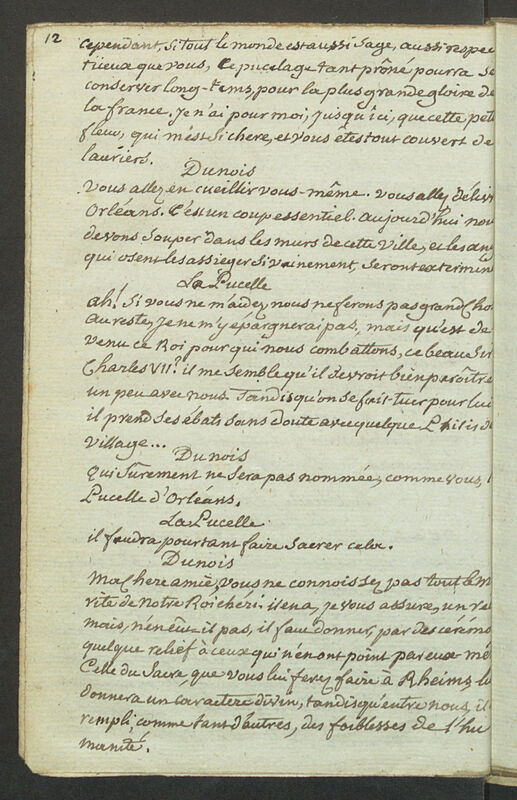 12
cependant, si tout le monde est aussi sage, aussi respec
tueux que vous, ce pucelage tant prôné pourra se
conserver long-tems, pour la plus grande gloire de
la france. Je n'ai pour moi, jusqu'ici, que cette petit
fleur, qui m'est si chere, et vous êtes tout couvert de
lauriers.
Dunois
Vous allez en cueillir vous-même. vous allez déliv
Orléans. C'est un coup essentiel. aujourd'hui nou
devons souper dans les murs de cette Ville, et les ang
qui osent les assieger si vainement, seront extermin
La Pucelle
ah! si vous ne m'aidez, nous ne ferons pas grand'Cho
Au reste, je ne m'y épargnerai pas, mais qu'est de
venu ce Roi pour qui nous combattons, ce beau Sir
Charles VII? il me semble qu'il devroit bien parôitre
un peu avec nous. Tandis qu'on se fait tuer pour lui
il prend ses ébats sans doute avec quelque Philis de
village...
Dunois
qui surement ne sera pas nommée, comme vous, l
Pucelle d'Orléans.
La Pucelle
il faudra pourtant faire sacrer cela.
Dunois
Ma Chere amie, vous ne connoissez pas tout le m
rite de notre Roi chéri: il en a, je vous assure, un ve
mais, n'en eût-il pas, il faut donner, par des cérémo
quelque relief à ceux qui n'en ont point par eux-mê
Celle du Sacre que vous lui ferez faire à Rheims, lu
donnera un caractere divin, tandis qu'entre nous, il
rempli, comme tant d'autres, des foiblesses de l'hu
manité.